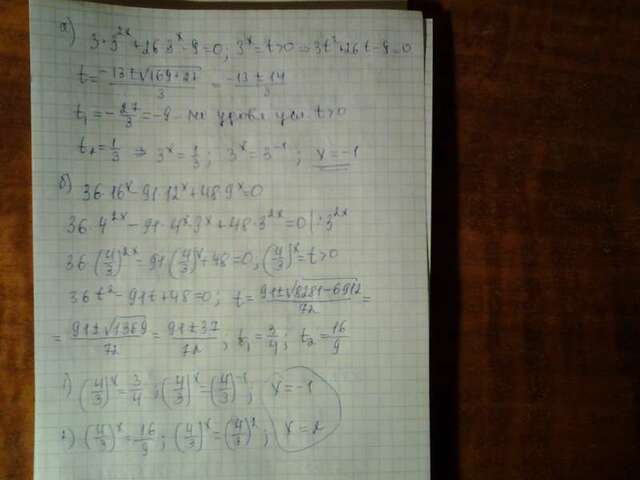 а) 3·3^2x+26·3^x-9=0; 3^x=t>0 ⇒ 3t²+26t-9=0
t = (-13±√(169+27))/3 = (-13±14)/3
t₁ = -27/3 = -9 - не удовл. усл. t>0
t₂ = 1/3 ⇒ 3^x = 1/3; 3^x = 3^-1; x=-1
б) 36·16^x-91·12^x+48·9^x=0
36·4^2x-91·4^x·9^x+48·3^2x=0 |:3^2x
36·(4/3)^2x-91·(4/3)^x+48=0; (4/3)^x=t>0
36t²-91t+48=0; t = (91±√(8281-6912))/72 =
= (91±√1369)/72 = (91±37)/72; t₁ = 3/4; t₂ = 16/9
1) (4/3)^x = 3/4; (4/3)^x = (4/3)^-1; x=-1
2) (4/3)^x = 16/9; (4/3)^x = (4/3)^2; x=2